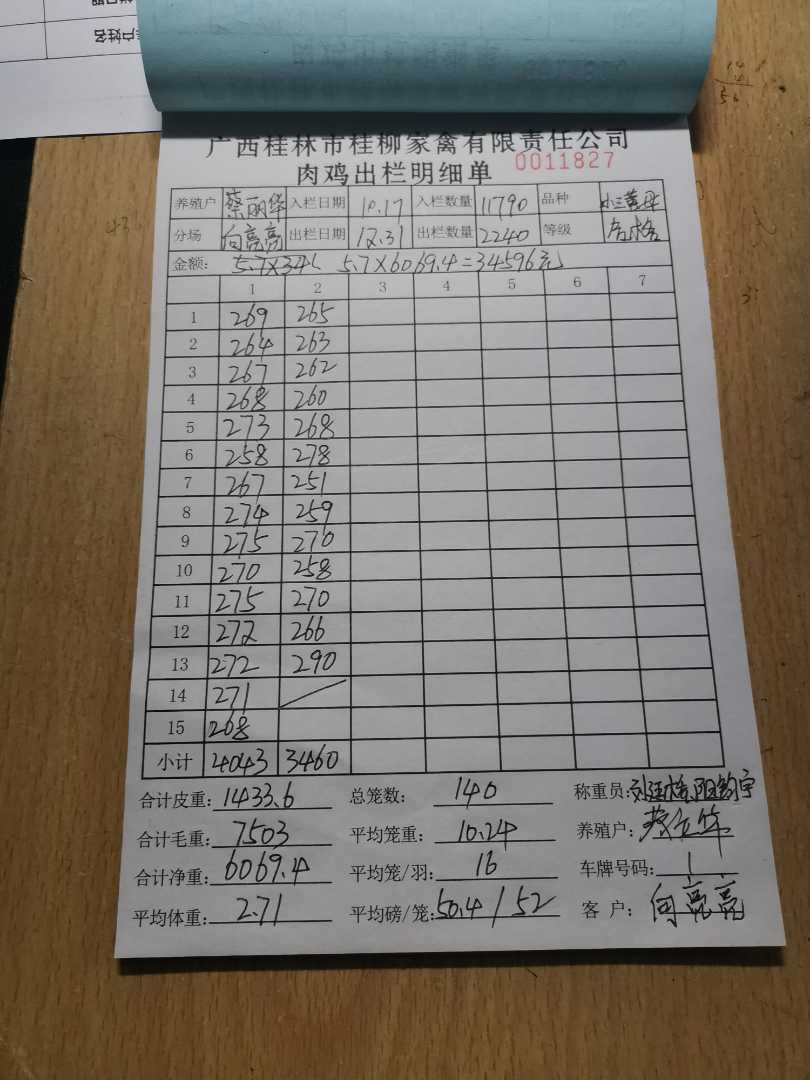 户姓名
广西桂林市桂柳家禽有限责任公司
肉鸡出栏明细单 0011827
养殖户 蔡丽华 入栏日期 10.17 入栏数量 11790 品种
分场 向亮亮 出栏日期 12.31 出栏数量 2240 等级 合格
金额: 5.7×34 5.7×6069.4=34596元
1 2 3 4 5 6 7
1 269 265
2 264 263
3 267 262
4 268 260
5 273 268
6 258 278
7 267 251
8 274 259
9 275 270
10 270 258
11 275 270
12 272 266
13 272 290
14 271
15 268
小计 4043 3460
合计皮重: 1433.6 总笼数: 140 称重员:
合计毛重: 7503 平均笼重: 10.24 养殖户:
合计净重: 6069.4 平均笼/羽: 16 车牌号码: 1
平均体重: 2.71 平均磅/笼: 50.4 / 52 客户: 向亮亮